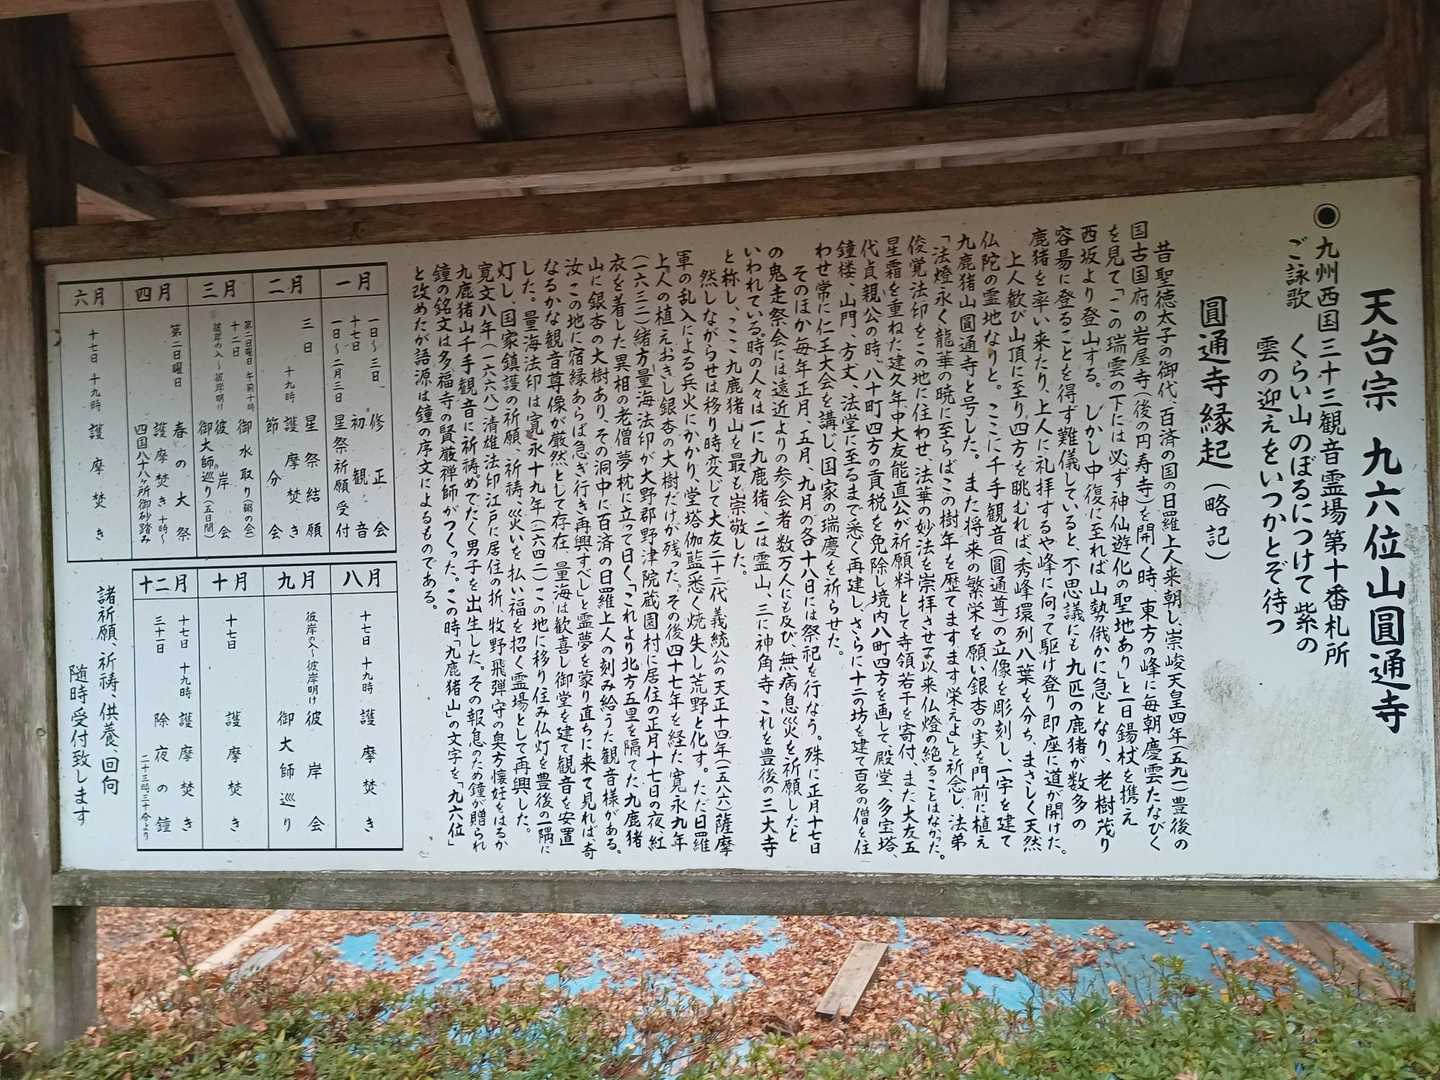 天台宗 九六位山圓通寺
◉九州西国三十三観音霊場第十番札所
ご詠歌 くらい山のぼるにつけて紫の
雲の迎えをいつかとぞ待つ
圓通寺縁起(略記)
昔聖徳太子の御代、百済の国の日羅上人来朝し、崇峻天皇四年(五九一)豊後の
国古国府の岩屋寺(後の円寿寺)を開く時、東方の峰に毎朝慶雲たなびく
を見て「この瑞雲の下には必ず神仙遊化の聖地あり」と一日錫杖を携え
西坂より登山する。しかし中復に至れば山勢俄かに急となり、老樹茂り
容易に登ることを得ず難儀していると不思議にも九匹の鹿猪が数多の
鹿猪を率い来たり、上人に礼拝するや峰に向って駆け登り即座に道が開けた。
上人歓び山頂に至り四方を眺むれば、秀峰環列八葉を分ち、まさしく天然
仏陀の霊地なりと。ここに千手観音(圓通尊)の立像を彫刻し、一宇を建て
九鹿猪山圓通寺と号した。また将来の繁栄を願い銀杏の実を門前に植え
「法燈永く龍華の暁に至らばこの樹年を歴てますます栄えよ」と祈念し、法弟
俊覚法印をこの地に住わせ、法華の妙法を崇拝させ以来仏燈の絶ることはなかった。
星霜を重ねた建久年中大友能直公が祈願料として寺領若干を寄付、また大友五
代貞親公の時、八十町四方の貢税を免除し境内八町四方を画して殿堂、多宝塔、
鐘楼、山門、方丈、法堂に至るまで悉く再建し、さらに十二の坊を建て百名の僧を住
わせ常に仁王大会を講じ、国家の瑞慶を祈らせた。
そのほか毎年正月、五月、九月の各十八日には祭祀を行なう。殊に正月十七日
の鬼走祭会には遠近よりの参会者数万人にも及び無病息災を祈願したと
いわれている。時の人々は一に九鹿猪、二は霊山、三に神角寺 これを豊後の三大寺
と称し、ここ九鹿猪山を最も崇敬した。
然しながらせは移り時変じて大友二十二代義統公の天正十四年(一五八六)薩摩
軍の乱入による兵火にかかり、堂塔伽藍悉く焼失し荒野と化す。ただ日羅
上人の植えおきし銀杏の大樹だけが残った。その後四十七年を経た寛永九年
(一六三二)緒方量海法印が大野郡野津院蔵園村に居住の正月十七日の夜、紅
衣を着した異相の老僧夢枕に立って曰く「これより北方五里を隔てた九鹿猪
山に銀杏の大樹あり、その洞中に百済の日羅上人の刻み給うた観音様がある。
汝この地に宿縁あらば急ぎ行き再興すべし」と霊夢を蒙り直ちに来て見れば奇
なるかな観音尊像が厳然として存在、量海は歓喜し御堂を建て観音を安置
した。量海法印は寛永十九年(一六四二)この地に移り住み仏灯を豊後の一隅に
灯し、国家鎮護の祈願、祈祷、災いを払い福を招く霊場として再興した。
寛文八年(一六六八)清雄法印江戸に居住の折、牧野飛弾守の奥方懐妊をはるか
九鹿猪山千手観音に祈祷めでたく男子を出生した。その報恩のため鐘が贈られ
鐘の銘文は多福寺の賢巌禅師がつくった。この時「九鹿猪山」の文字を、「九六位」
と改めたが語源は鐘の序文によるものである。
一月
一日〜三日 修正会
十七日 初観音
一日〜二月三日 星祭祈願受付
二月
三日 星祭結願
十九時 護摩焚き
節分会
三月
第二日曜日 午前十時 御水取り(粥の会)
十二日
彼岸の入〜彼岸明け 彼岸会
御大師巡り(五日間)
四月
第二日曜日 春の大祭
護摩焚き 十時〜
四国八十八ヶ所御砂踏み
六月
十七日 十九時 護摩焚き
八月
十七日 十九時 護摩焚き
九月
彼岸の入〜彼岸明け 彼岸会
御大師巡り
十月
十七日 護摩焚き
十二月
十七日 十九時 護摩焚き
三十一日 除夜の鐘
二十三時三十分より
諸祈願、祈祷、供養、回向
随時受付致します